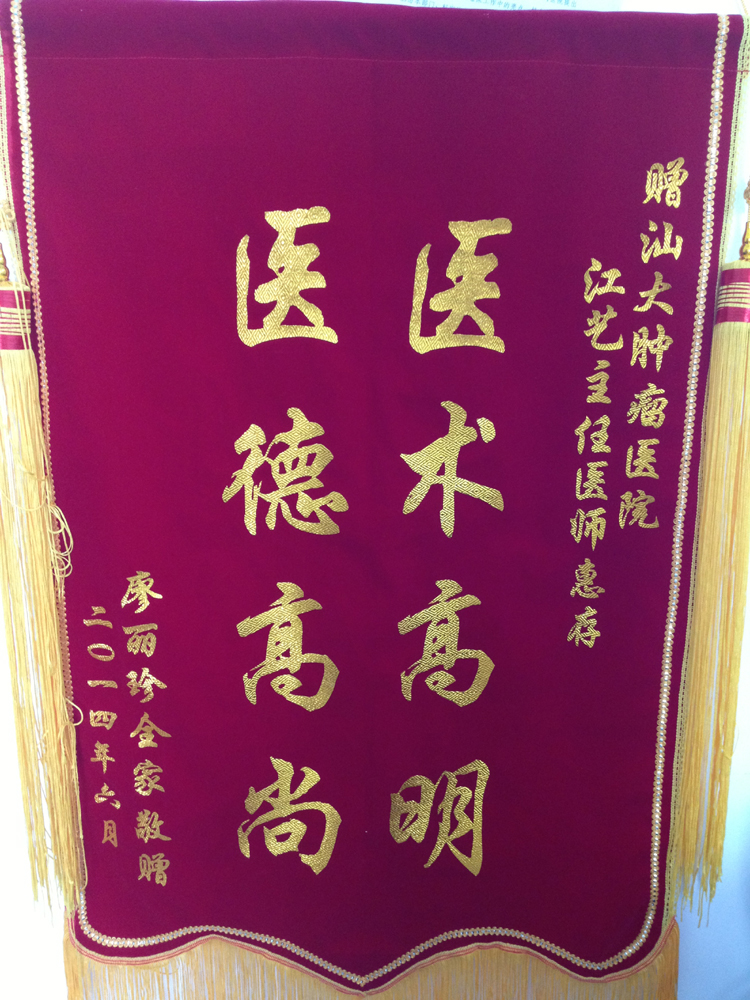 赠汕大肿瘤医院
江艺主任医师惠存
医术高明
医德高尚
廖丽珍全家敬赠
二〇一四年六月